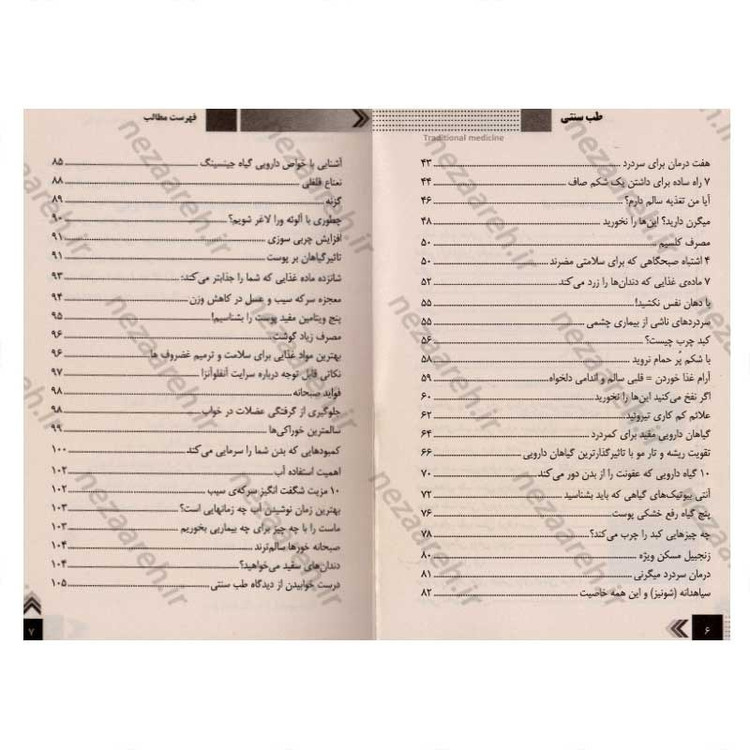 طب سنتی
Traditional medicine
هفت درمان برای سردرد ۴۳
۷ راه ساده برای داشتن یک شکم صاف ۴۴
آیا من تغذیه سالم دارم؟ ۴۶
میگرن دارید؟ این‌ها را نخورید ۴۸
مصرف کلسیم ۵۰
۴ اشتباه صبحگاهی که برای سلامتی مضرند ۵۰
۷ ماده‌ی غذایی که دندان‌ها را زرد می‌کند ۵۲
با دهان نفس نکشید! ۵۵
سردردهای ناشی از بیماری چشمی ۵۵
کبد چرب چیست؟ ۵۶
با شکم پُر حمام نروید ۵۸
آرام غذا خوردن = قلبی سالم و اندامی دلخواه ۵۹
اگر نفخ می‌کنید این‌ها را نخورید ۶۰
علائم کم کاری تیروئید ۶۲
گیاهان دارویی مفید برای کمردرد ۶۴
تقویت ریشه و تار مو با تاثیرگذارترین گیاهان دارویی ۶۶
۱۰ گیاه دارویی که عفونت را از بدن دور می‌کند ۷۰
آنتی بیوتیک‌های گیاهی که باید بشناسید ۷۲
پنج گیاه رفع خشکی پوست ۷۶
چه چیزهایی کبد را چرب می‌کند؟ ۷۸
زنجبیل مسکن ویژه ۸۰
درمان سردرد میگرنی ۸۱
سیاهدانه (شونیز) و این همه خاصیت ۸۲
۶
فهرست مطالب
آشنایی با خواص دارویی گیاه جینسینگ ۸۵
نعناع فلفلی ۸۸
گزنه ۸۹
چطوری با آلوئه ورا لاغر شویم؟ ۹۰
افزایش چربی سوزی ۹۱
تاثیرگیاهان بر پوست ۹۱
شانزده ماده غذایی که شما را جذابتر می‌کند: ۹۳
معجزه سرکه سیب و عسل در کاهش وزن ۹۴
پنج ویتامین مفید پوست را بشناسیم! ۹۵
مصرف زیاد گوشت ۹۶
بهترین مواد غذایی برای سلامت و ترمیم غضروف ها ۹۶
نکاتی قابل توجه درباره سرایت آنفلوآنزا ۹۷
فواید صبحانه ۹۸
جلوگیری از گرفتگی عضلات در خواب ۹۸
سالمترین خوراکی‌ها ۹۹
کمبودهایی که بدن شما را سرمایی می‌کند ۱۰۰
اهمیت استفاده آب ۱۰۲
۱۰ مزیت شگفت انگیز سرکه‌ی سیب ۱۰۲
بهترین زمان نوشیدن آب چه زمانهایی است؟ ۱۰۳
ماست را با چه چیز برای چه بیماریی بخوریم ۱۰۳
صبحانه خورها سالم‌ترند ۱۰۴
دندان‌های سفید می‌خواهید؟ ۱۰۴
درست خوابیدن از دیدگاه طب سنتی ۱۰۵
۷
nezaareh.ir
nezaareh.ir
nezaareh.ir
nezaareh.ir
nezaareh.ir
nezaareh.ir
nezaareh.ir
nezaareh.ir